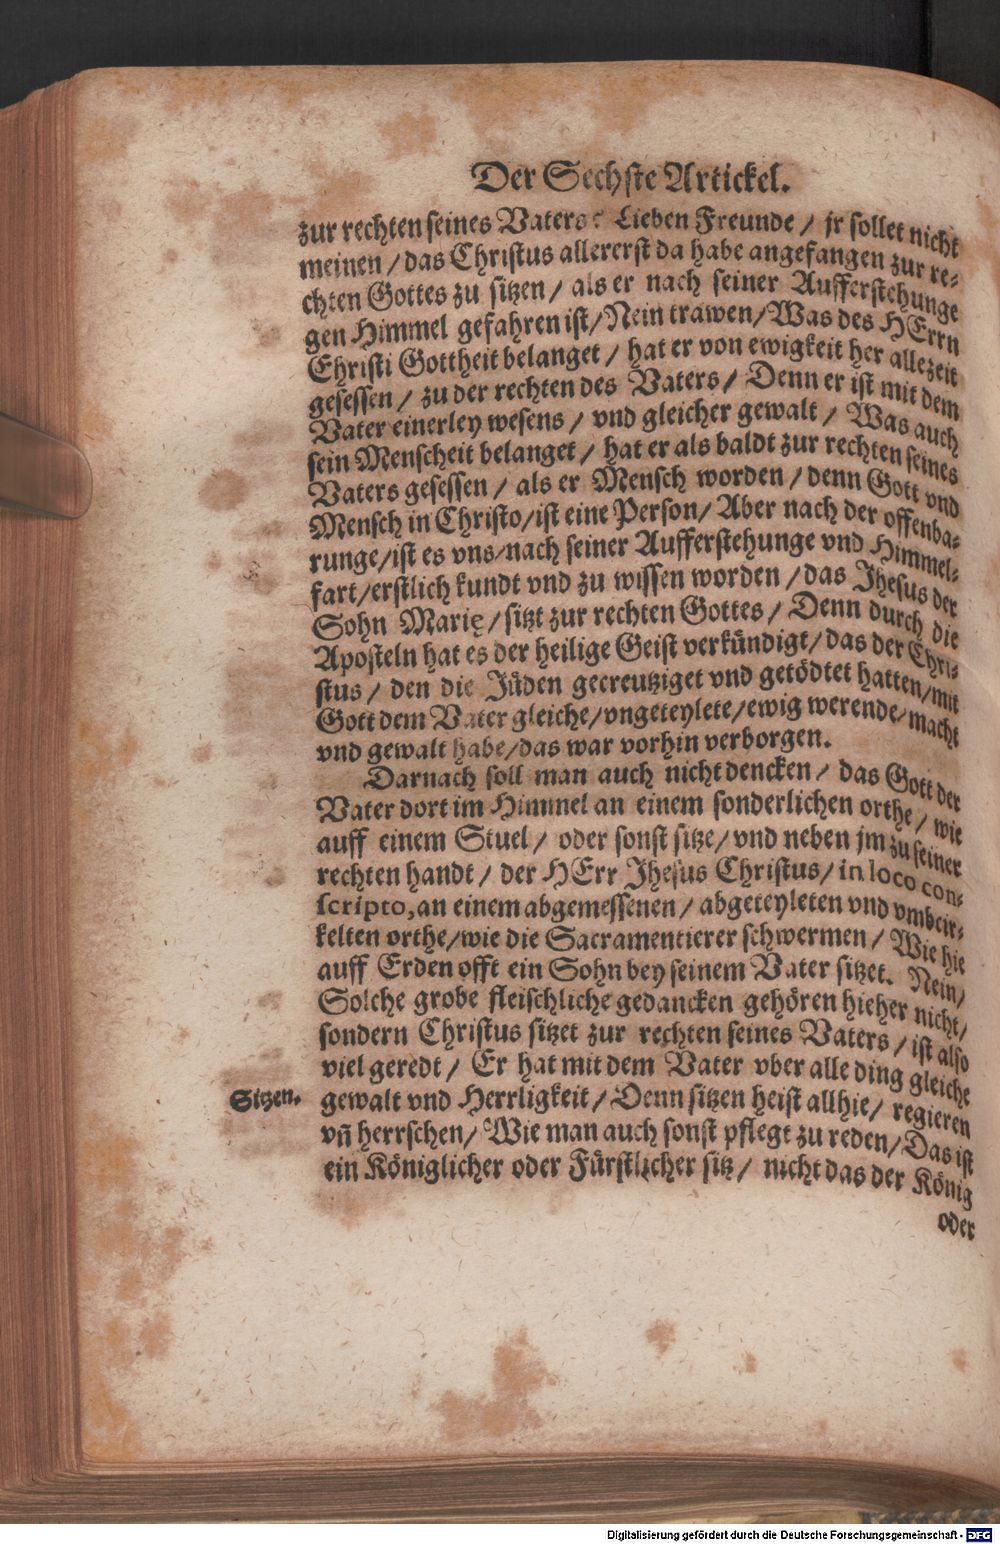 Der Sechste Artickel.
zur rechten seines Vaters? Lieben Freunde / jr sollet nicht
meinen / das Christus allererst da habe angefangen zur re-
chten Gottes zu sitzen / als er nach seiner Aufferstehunge
gen Himmel gefahren ist / Nein trawen / Was des HErrn
Christi Gottheit belanget / hat er von ewigkeit her allezeit
gesessen / zu der rechten des Vaters / Denn er ist mit dem
Vater einerley wesens / vnd gleicher gewalt / Was auch
sein Menscheit belanget / hat er als baldt zur rechten seines
Vaters gesessen / als er Mensch worden / denn Gott vnd
Mensch in Christo / ist eine Person / Aber nach der offenba-
runge / ist es vns / nach seiner Aufferstehunge vnd Himmel-
fart / erstlich kundt vnd zu wissen worden / das Jhesus der
Sohn Marie / sitzt zur rechten Gottes / Denn durch die
Aposteln hat es der heilige Geist verkündigt / das der Chri-
stus / den die Jüden gecreutziget vnd getödtet hatten / mit
Gott dem Vater gleiche / vngeteylete / ewig werende / macht
vnd gewalt habe / das war vorhin verborgen.
Darnach soll man auch nicht dencken / das Gott der
Vater dort im Himmel an einem sonderlichen orthe / wie
auff einem Stuel / oder sonst sitze / vnd neben jm zu seiner
rechten handt / der HErr Jhesus Christus / in loco con-
scripto, an einem abgemessenen / abgeteyleten vnd vmbcir-
kelten orthe / wie die Sacramentierer schwermen / Wie hie
auff Erden offt ein Sohn bey seinem Vater sitzet. Nein /
Solche grobe fleischliche gedancken gehören hieher nicht /
sondern Christus sitzet zur rechten seines Vaters / ist also
viel geredt / Er hat mit dem Vater vber alle ding gleiche
Sitzen.
gewalt vnd Herrligkeit / Denn sitzen heist allhie / regieren
vn̄ herrschen / Wie man auch sonst pflegt zu reden / Das ist
ein Königlicher oder Fürstlicher sitz / nicht das der König
oder
Digitalisierung gefördert durch die Deutsche Forschungsgemeinschaft - DFG